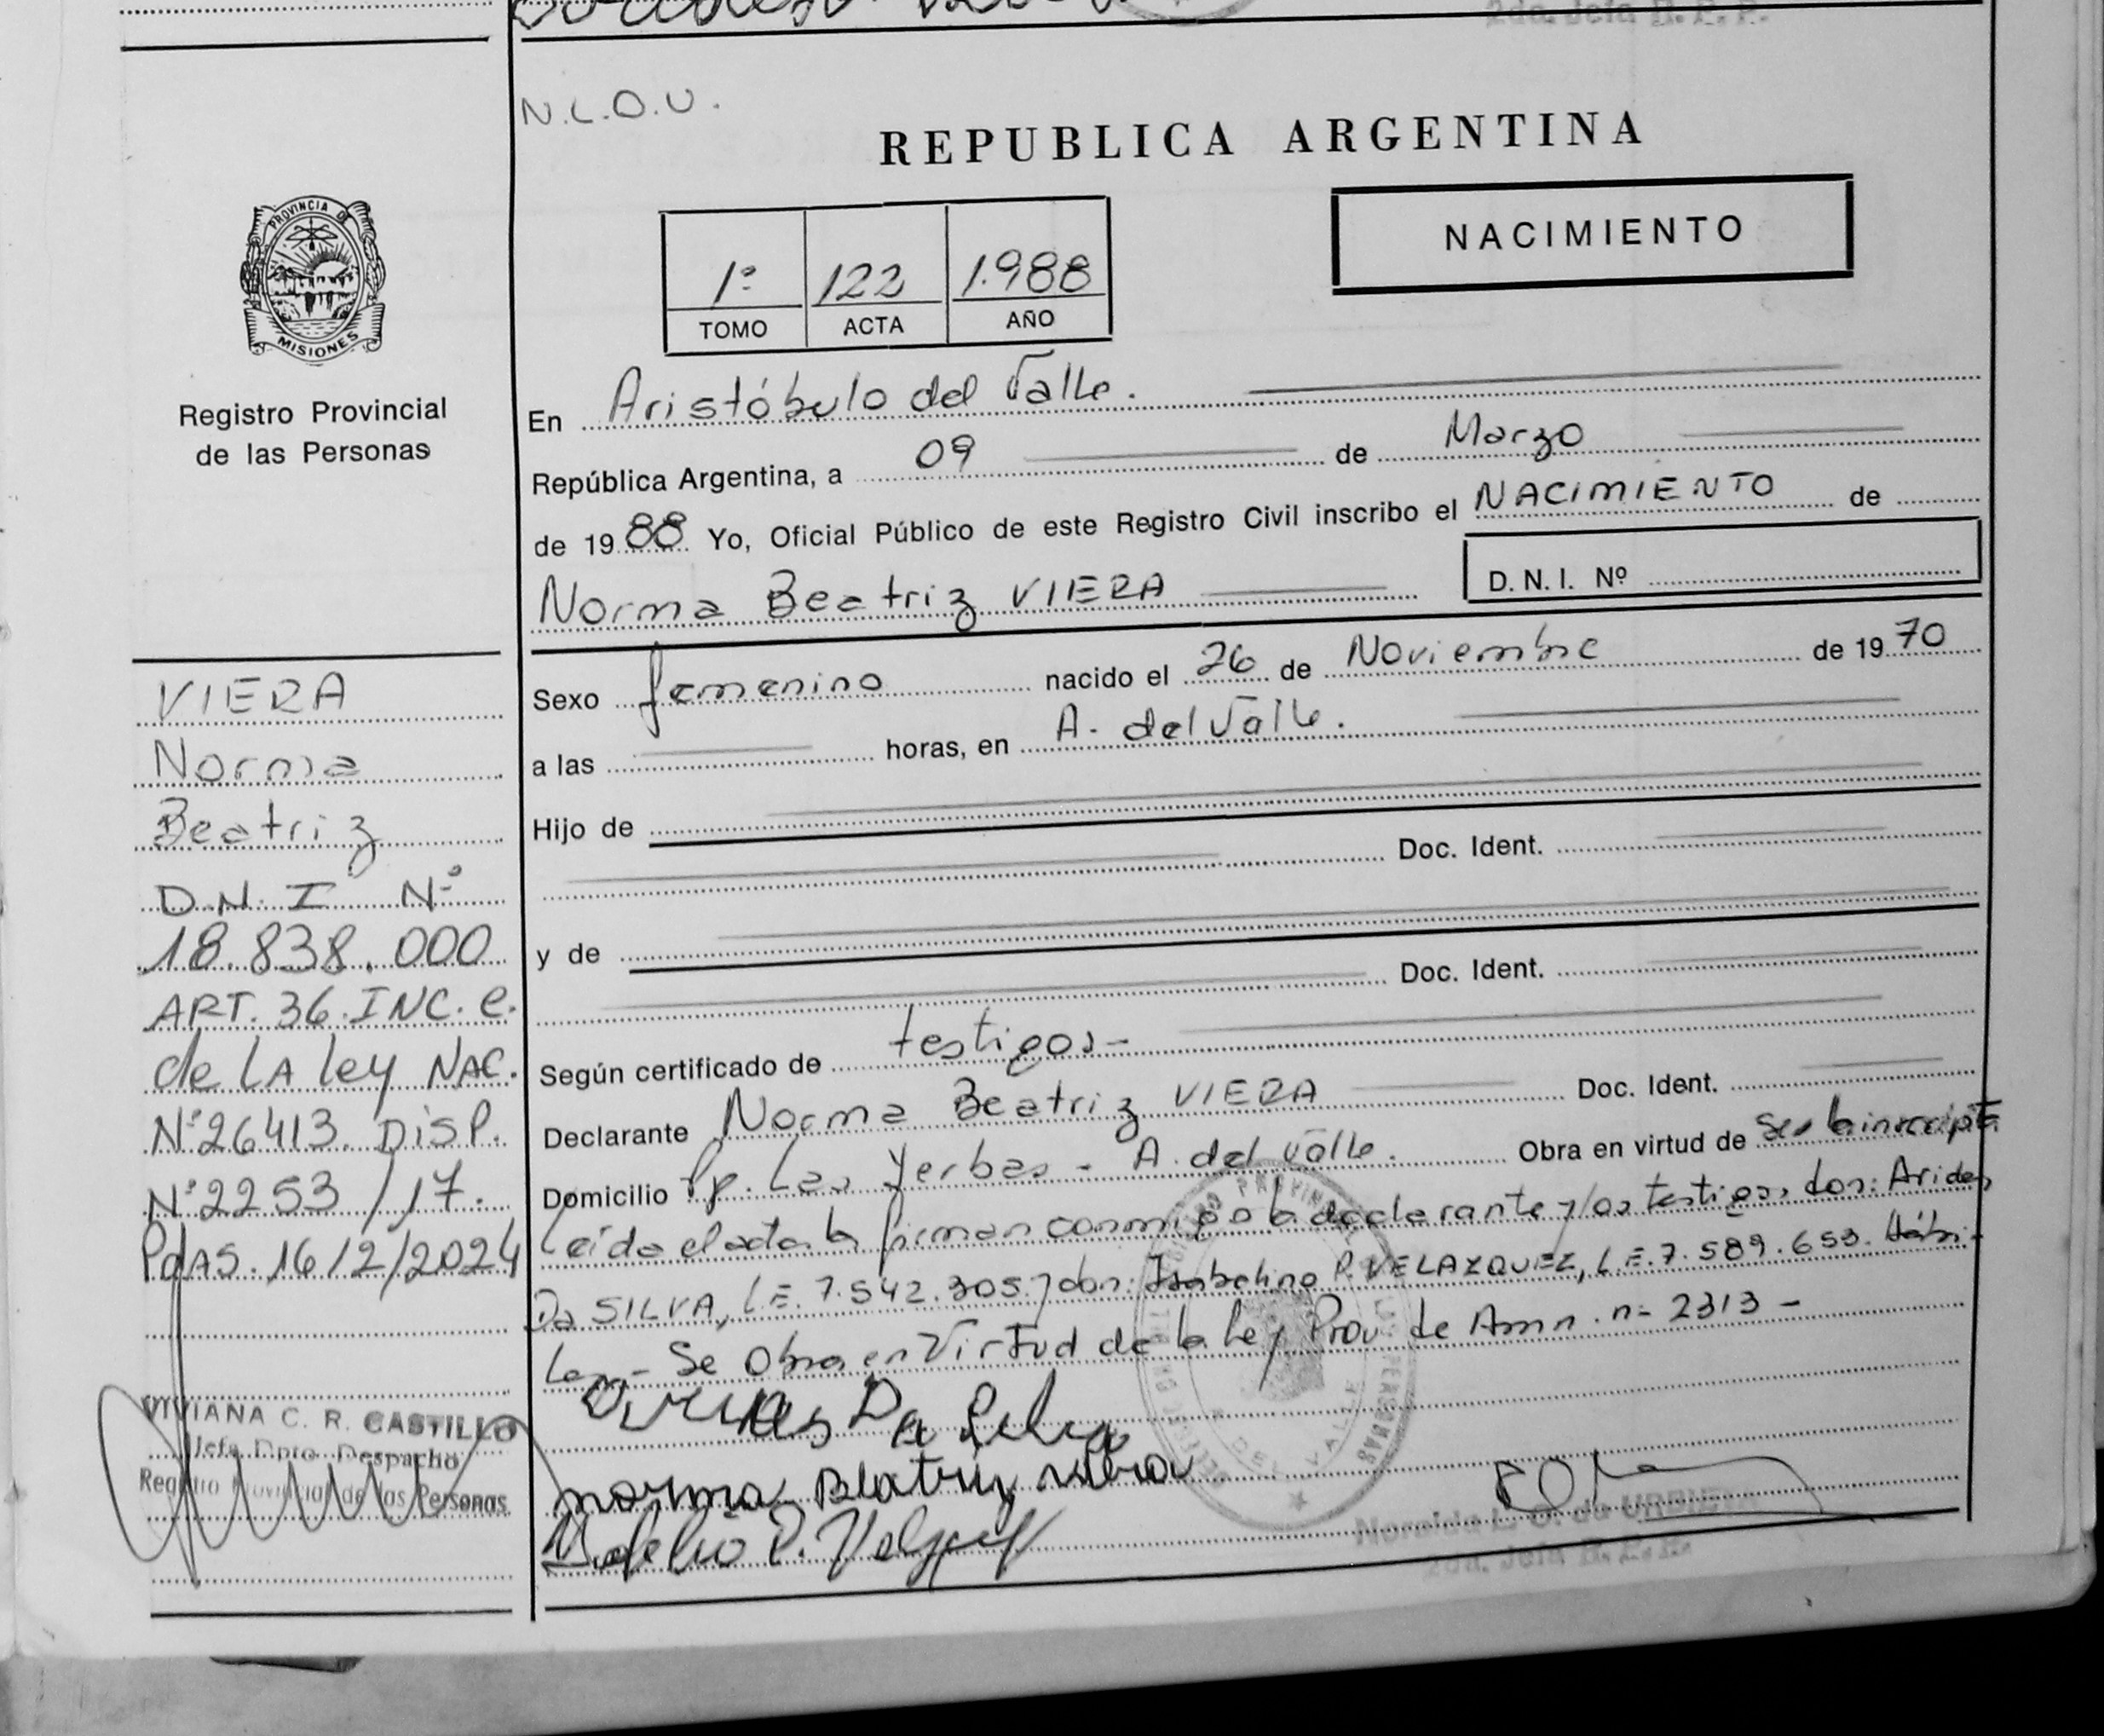 2da. Jefa R. P. P.
N.L.O.U.
REPUBLICA ARGENTINA
NACIMIENTO
1º 122 1.988
TOMO ACTA AÑO
PROVINCIA DE
MISIONES
Registro Provincial
de las Personas
En Aristóbulo del Valle.
República Argentina, a 09 de Marzo
de 1988 Yo, Oficial Público de este Registro Civil inscribo el NACIMIENTO de
Norma Beatriz VIERA D. N. I. Nº
Sexo femenino nacido el 26 de Noviembre de 1970
a las horas, en A. del Valle.
Hijo de
Doc. Ident.
y de
Doc. Ident.
Según certificado de testigos-
Declarante Norma Beatriz VIERA Doc. Ident.
Domicilio Pp. Las Yerbas - A. del Valle. Obra en virtud de ser la inscripta
Leída el acta la firman conmigo la declarante y los testigos, don: Arides
Da SILVA, L.E. 7.542.305 y don: Isabelino P. VELAZQUEZ, L.E. 7.589.653. Hábi-
les.- Se Obra en Virtud de la Ley Prov. de Amn. nº 2313 -
Da Silva
norma Beatriz viera
P. Velazquez
Noroida L. O. de URBIETA
2da. Jefa R. P. P.
REGISTRO PROVINCIAL DE LAS PERSONAS
DEL VALLE
VIERA
Norma
Beatriz
D.N.I Nº
18.838.000
ART. 36.INC. e.
de LA ley NAC.
Nº26413. DISP.
Nº2253/17.
PdAS. 16/2/2024
VIVIANA C. R. CASTILLO
Jefa Dpto. Despacho
Registro Provincial de las Personas